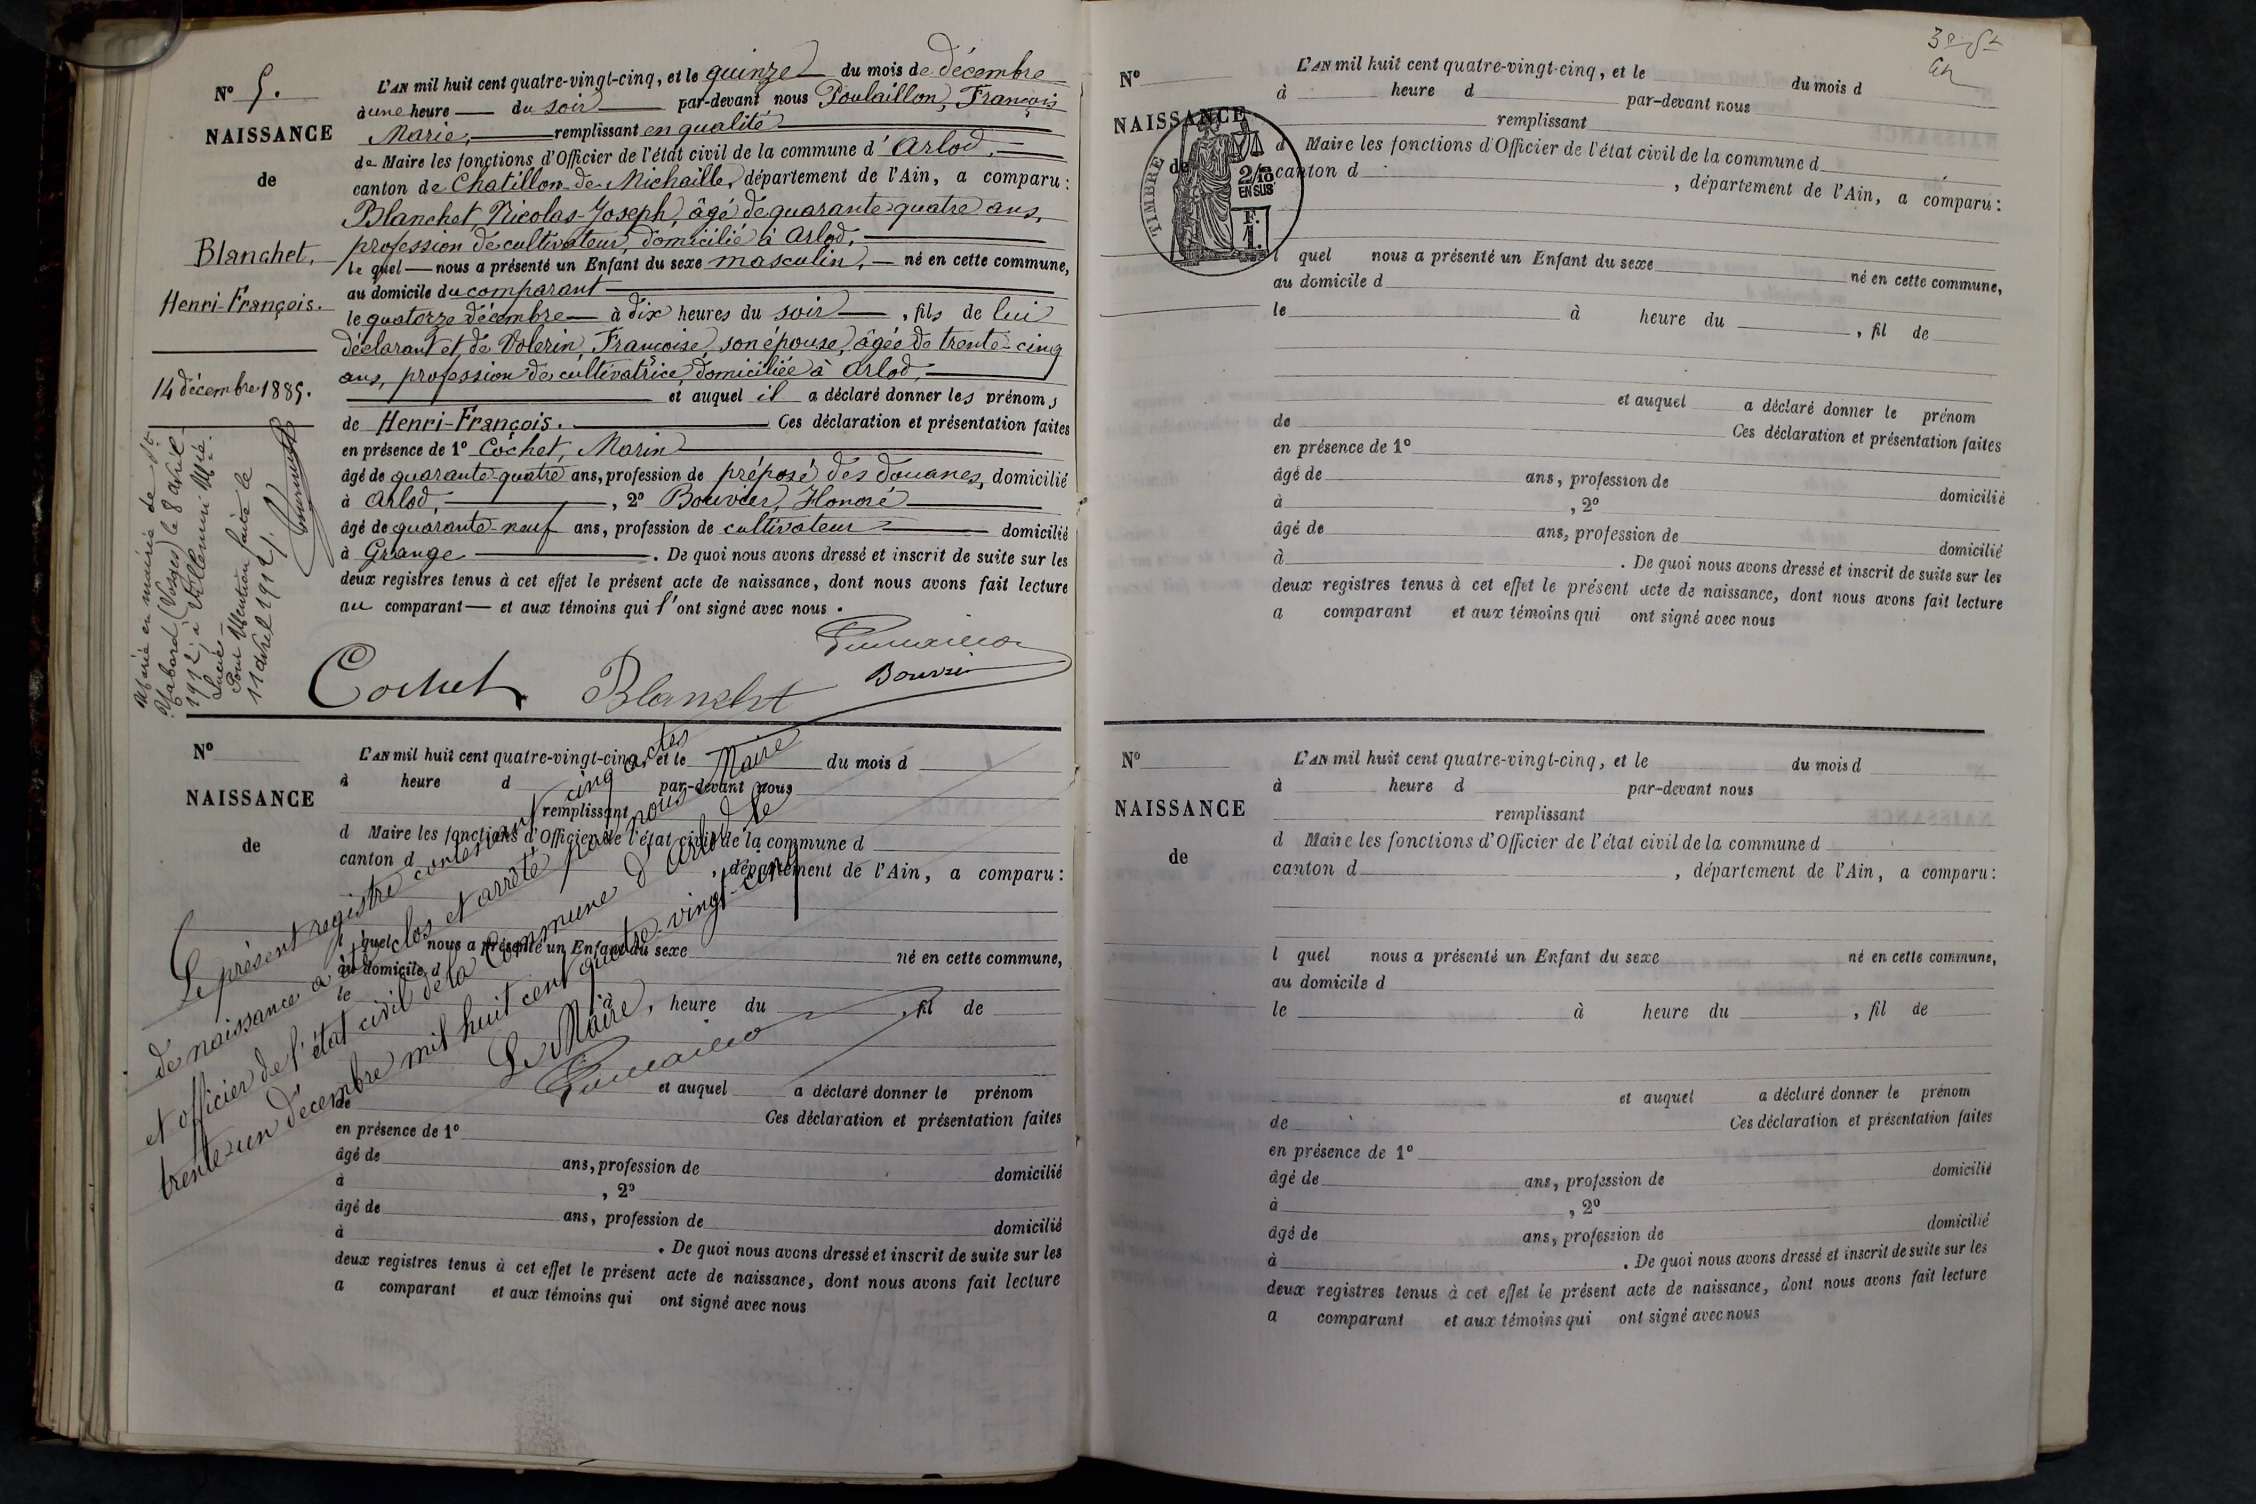 N° 5.
NAISSANCE
de
Blanchet,
Henri-François.
14 décembre 1885.
Marié en mairie de
Rabard (Vosges) le 8 avril
1912, à Villemin
Lucie
Pour Mention faite le
11 avril 1912.
L'AN mil huit cent quatre-vingt-cinq, et le quinze du mois de décembre
à une heure du soir par-devant nous Poulaillon, François
Marie, remplissant en qualité
de Maire les fonctions d'Officier de l'état civil de la commune d'Arlod,
canton de Chatillon-de-Michaille, département de l'Ain, a comparu :
Blanchet, Nicolas-Joseph, âgé de quarante-quatre ans,
profession de cultivateur, domicilié à Arlod,
le quel nous a présenté un Enfant du sexe masculin, né en cette commune,
au domicile du comparant
le quatorze décembre à dix heures du soir, fils de lui
déclarant et de Volerin, Francoise, son épouse, âgée de trente-cinq
ans, profession de cultivatrice, domiciliée à Arlod,
et auquel il a déclaré donner les prénoms
de Henri-François. Ces déclaration et présentation faites
en présence de 1° Cochet, Marin
âgé de quarante-quatre ans, profession de préposé des douanes, domicilié
à Arlod, , 2° Bouvier, Honoré
âgé de quarante-neuf ans, profession de cultivateur domicilié
à Grange . De quoi nous avons dressé et inscrit de suite sur les
deux registres tenus à cet effet le présent acte de naissance, dont nous avons fait lecture
au comparant et aux témoins qui l'ont signé avec nous.
Cochet Blanchet Bouvier
N°
NAISSANCE
de
L'AN mil huit cent quatre-vingt-cinq, et le du mois d
à heure d par-devant nous
remplissant
d Maire les fonctions d'Officier de l'état civil de la commune d
canton d , département de l'Ain, a comparu :
l quel nous a présenté un Enfant du sexe né en cette commune,
au domicile d
le à heure du , fil de
et auquel a déclaré donner le prénom
de Ces déclaration et présentation faites
en présence de 1°
âgé de ans, profession de domicilié
à , 2°
âgé de ans, profession de domicilié
à . De quoi nous avons dressé et inscrit de suite sur les
deux registres tenus à cet effet le présent acte de naissance, dont nous avons fait lecture
a comparant et aux témoins qui ont signé avec nous
Le présent registre contenant cinq actes
de naissance a été clos et arrêté par nous Maire
et officier de l'état civil de la commune d'Arlod le
trente-un décembre mil huit cent quatre-vingt-cinq
Le Maire,
N°
NAISSANCE
de
TIMBRE
2/10
EN SUS
F.
1.
L'AN mil huit cent quatre-vingt-cinq, et le du mois d
à heure d par-devant nous
remplissant
d Maire les fonctions d'Officier de l'état civil de la commune d
canton d , département de l'Ain, a comparu :
l quel nous a présenté un Enfant du sexe né en cette commune,
au domicile d
le à heure du , fil de
et auquel a déclaré donner le prénom
de Ces déclaration et présentation faites
en présence de 1°
âgé de ans, profession de domicilié
à , 2°
âgé de ans, profession de domicilié
à . De quoi nous avons dressé et inscrit de suite sur les
deux registres tenus à cet effet le présent acte de naissance, dont nous avons fait lecture
a comparant et aux témoins qui ont signé avec nous
N°
NAISSANCE
de
L'AN mil huit cent quatre-vingt-cinq, et le du mois d
à heure d par-devant nous
remplissant
d Maire les fonctions d'Officier de l'état civil de la commune d
canton d , département de l'Ain, a comparu :
l quel nous a présenté un Enfant du sexe né en cette commune,
au domicile d
le à heure du , fil de
et auquel a déclaré donner le prénom
de Ces déclaration et présentation faites
en présence de 1°
âgé de ans, profession de domicilié
à , 2°
âgé de ans, profession de domicilié
à . De quoi nous avons dressé et inscrit de suite sur les
deux registres tenus à cet effet le présent acte de naissance, dont nous avons fait lecture
a comparant et aux témoins qui ont signé avec nous